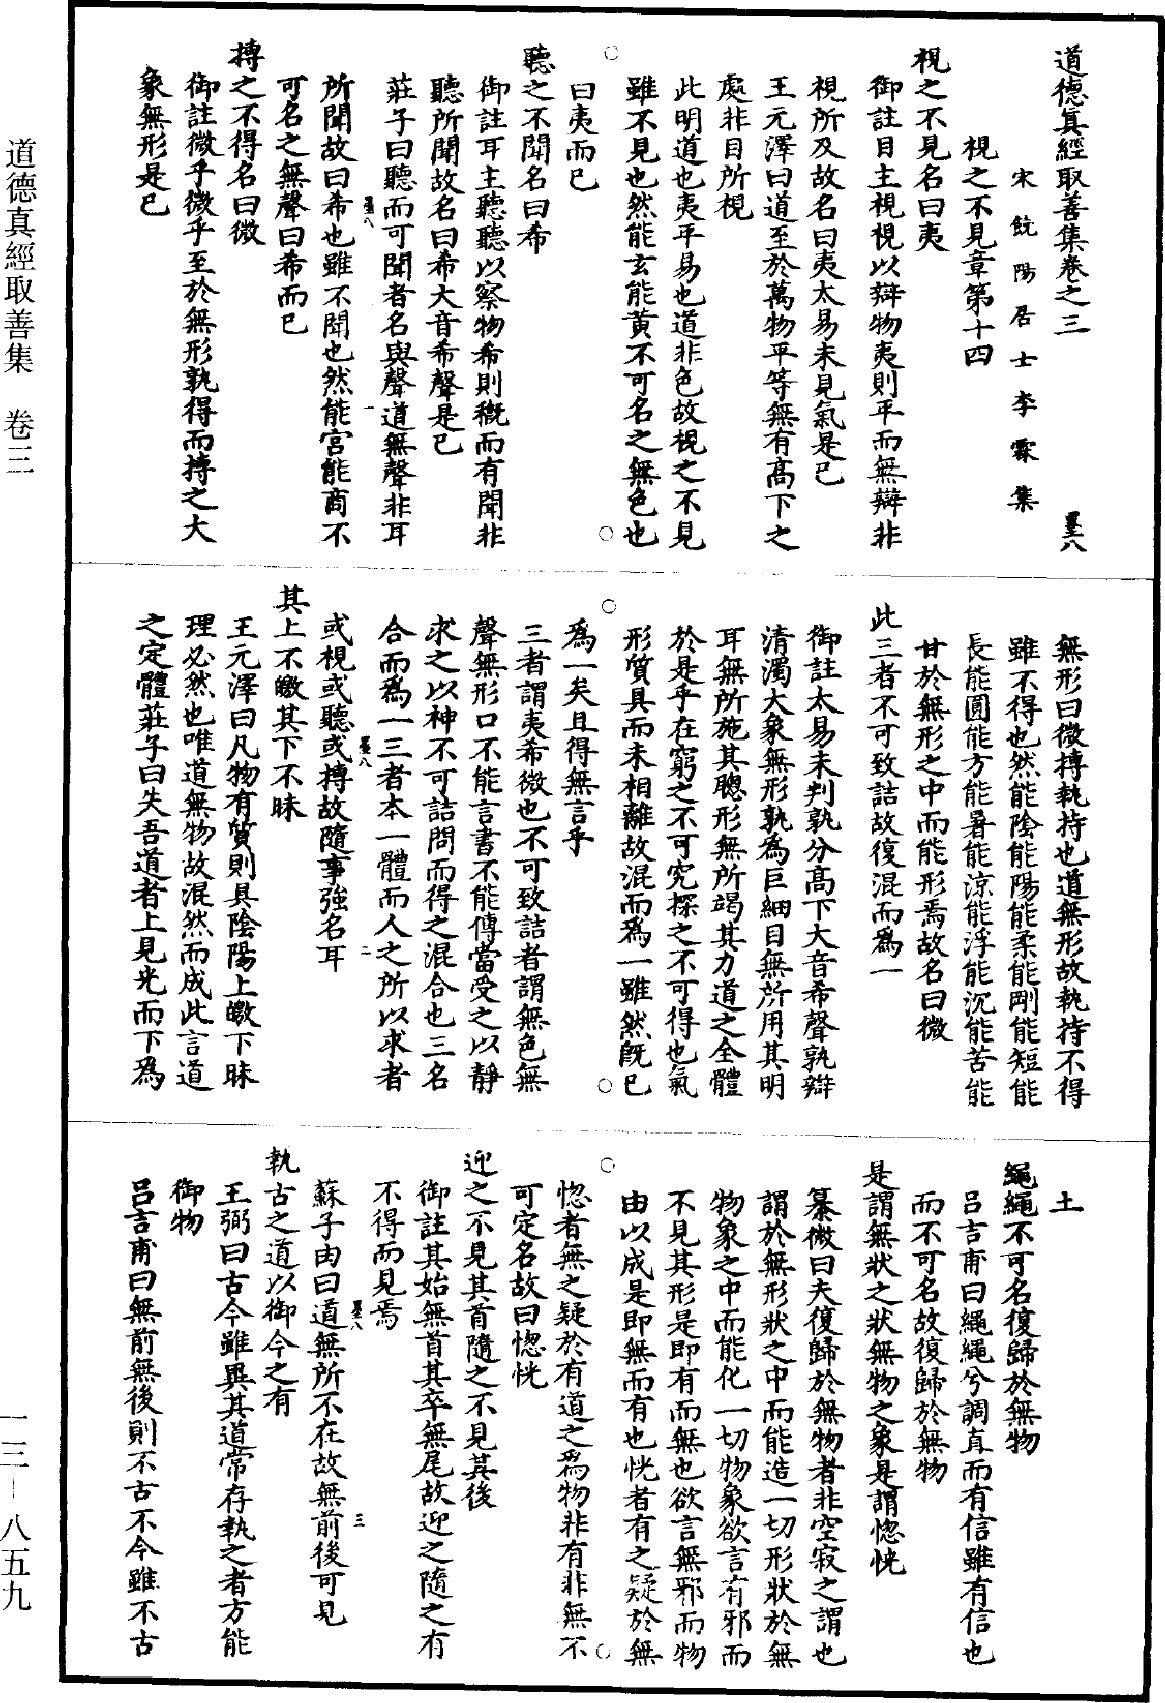 道德眞經取善集卷之三　墨八
宋饒陽居士李霖集
視之不見章第十四
視之不見名曰夷
御註目主視視以辯物夷則平而無辯非
視所及故名曰夷太易未見氣是已
王元澤曰道至於萬物平等無有高下之
處非目所視
此明道也夷平易也道非色故視之不見
雖不見也然能玄能黄不可名之無色也
曰夷而已
聽之不聞名曰希
御註耳主聽聽以察物希則㮣而有聞非
聽所聞故名曰希大音希聲是已
莊子曰聽而可聞者名與聲道無聲非耳
墨八　一
所聞故曰希也雖不聞也然能宮能商不
可名之無聲曰希而已
摶之不得名曰微
御註微乎微乎至於無形孰得而摶之大
象無形是已
無形曰微摶執持也道無形故執持不得
雖不得也然能陰能陽能柔能剛能短能
長能圓能方能暑能涼能浮能沉能苦能
甘於無形之中而能形焉故名曰微
此三者不可致詰故復混而爲一
御註太易未判孰分高下大音希聲孰辯
清濁大象無形孰為巨細目無所用其明
耳無所施其聰形無所竭其力道之全體
於是乎在窮之不可究探之不可得也氣
形質具而未相離故混而爲一雖然既已
爲一矣且得無言乎
三者謂夷希微也不可致詰者謂無色無
聲無形口不能言書不能傳當受之以靜
求之以神不可詰問而得之混合也三名
合而爲一三者本一體而人之所以求者
墨八　二
或視或聽或摶故隨事強名耳
其上不皦其下不昧
王元澤曰凡物有質則具陰陽上皦下昧
理必然也唯道無物故混然而成此言道
之定體莊子曰失吾道者上見光而下爲
土
繩繩不可名復歸於無物
呂吉甫曰繩繩兮調直而有信雖有信也
而不可名故復歸於無物
是謂無狀之狀無物之象是謂惚恍
纂微曰夫復歸於無物者非空寂之謂也
謂於無形狀之中而能造一切形狀於無
物象之中而能化一切物象欲言有邪而
不見其形是即有而無也欲言無邪而物
由以成是即無而有也恍者有之疑於無
惚者無之疑於有道之爲物非有非無不
可定名故曰惚恍
迎之不見其首隨之不見其後
御註其始無首其卒無尾故迎之隨之有
不得而見焉
墨八　三
蘇子由曰道無所不在故無前後可見
執古之道以御今之有
王弼曰古今雖異其道常存執之者方能
御物
呂吉甫曰無前無後則不古不今雖不古
道德真經取善集　卷三
一三－八五九